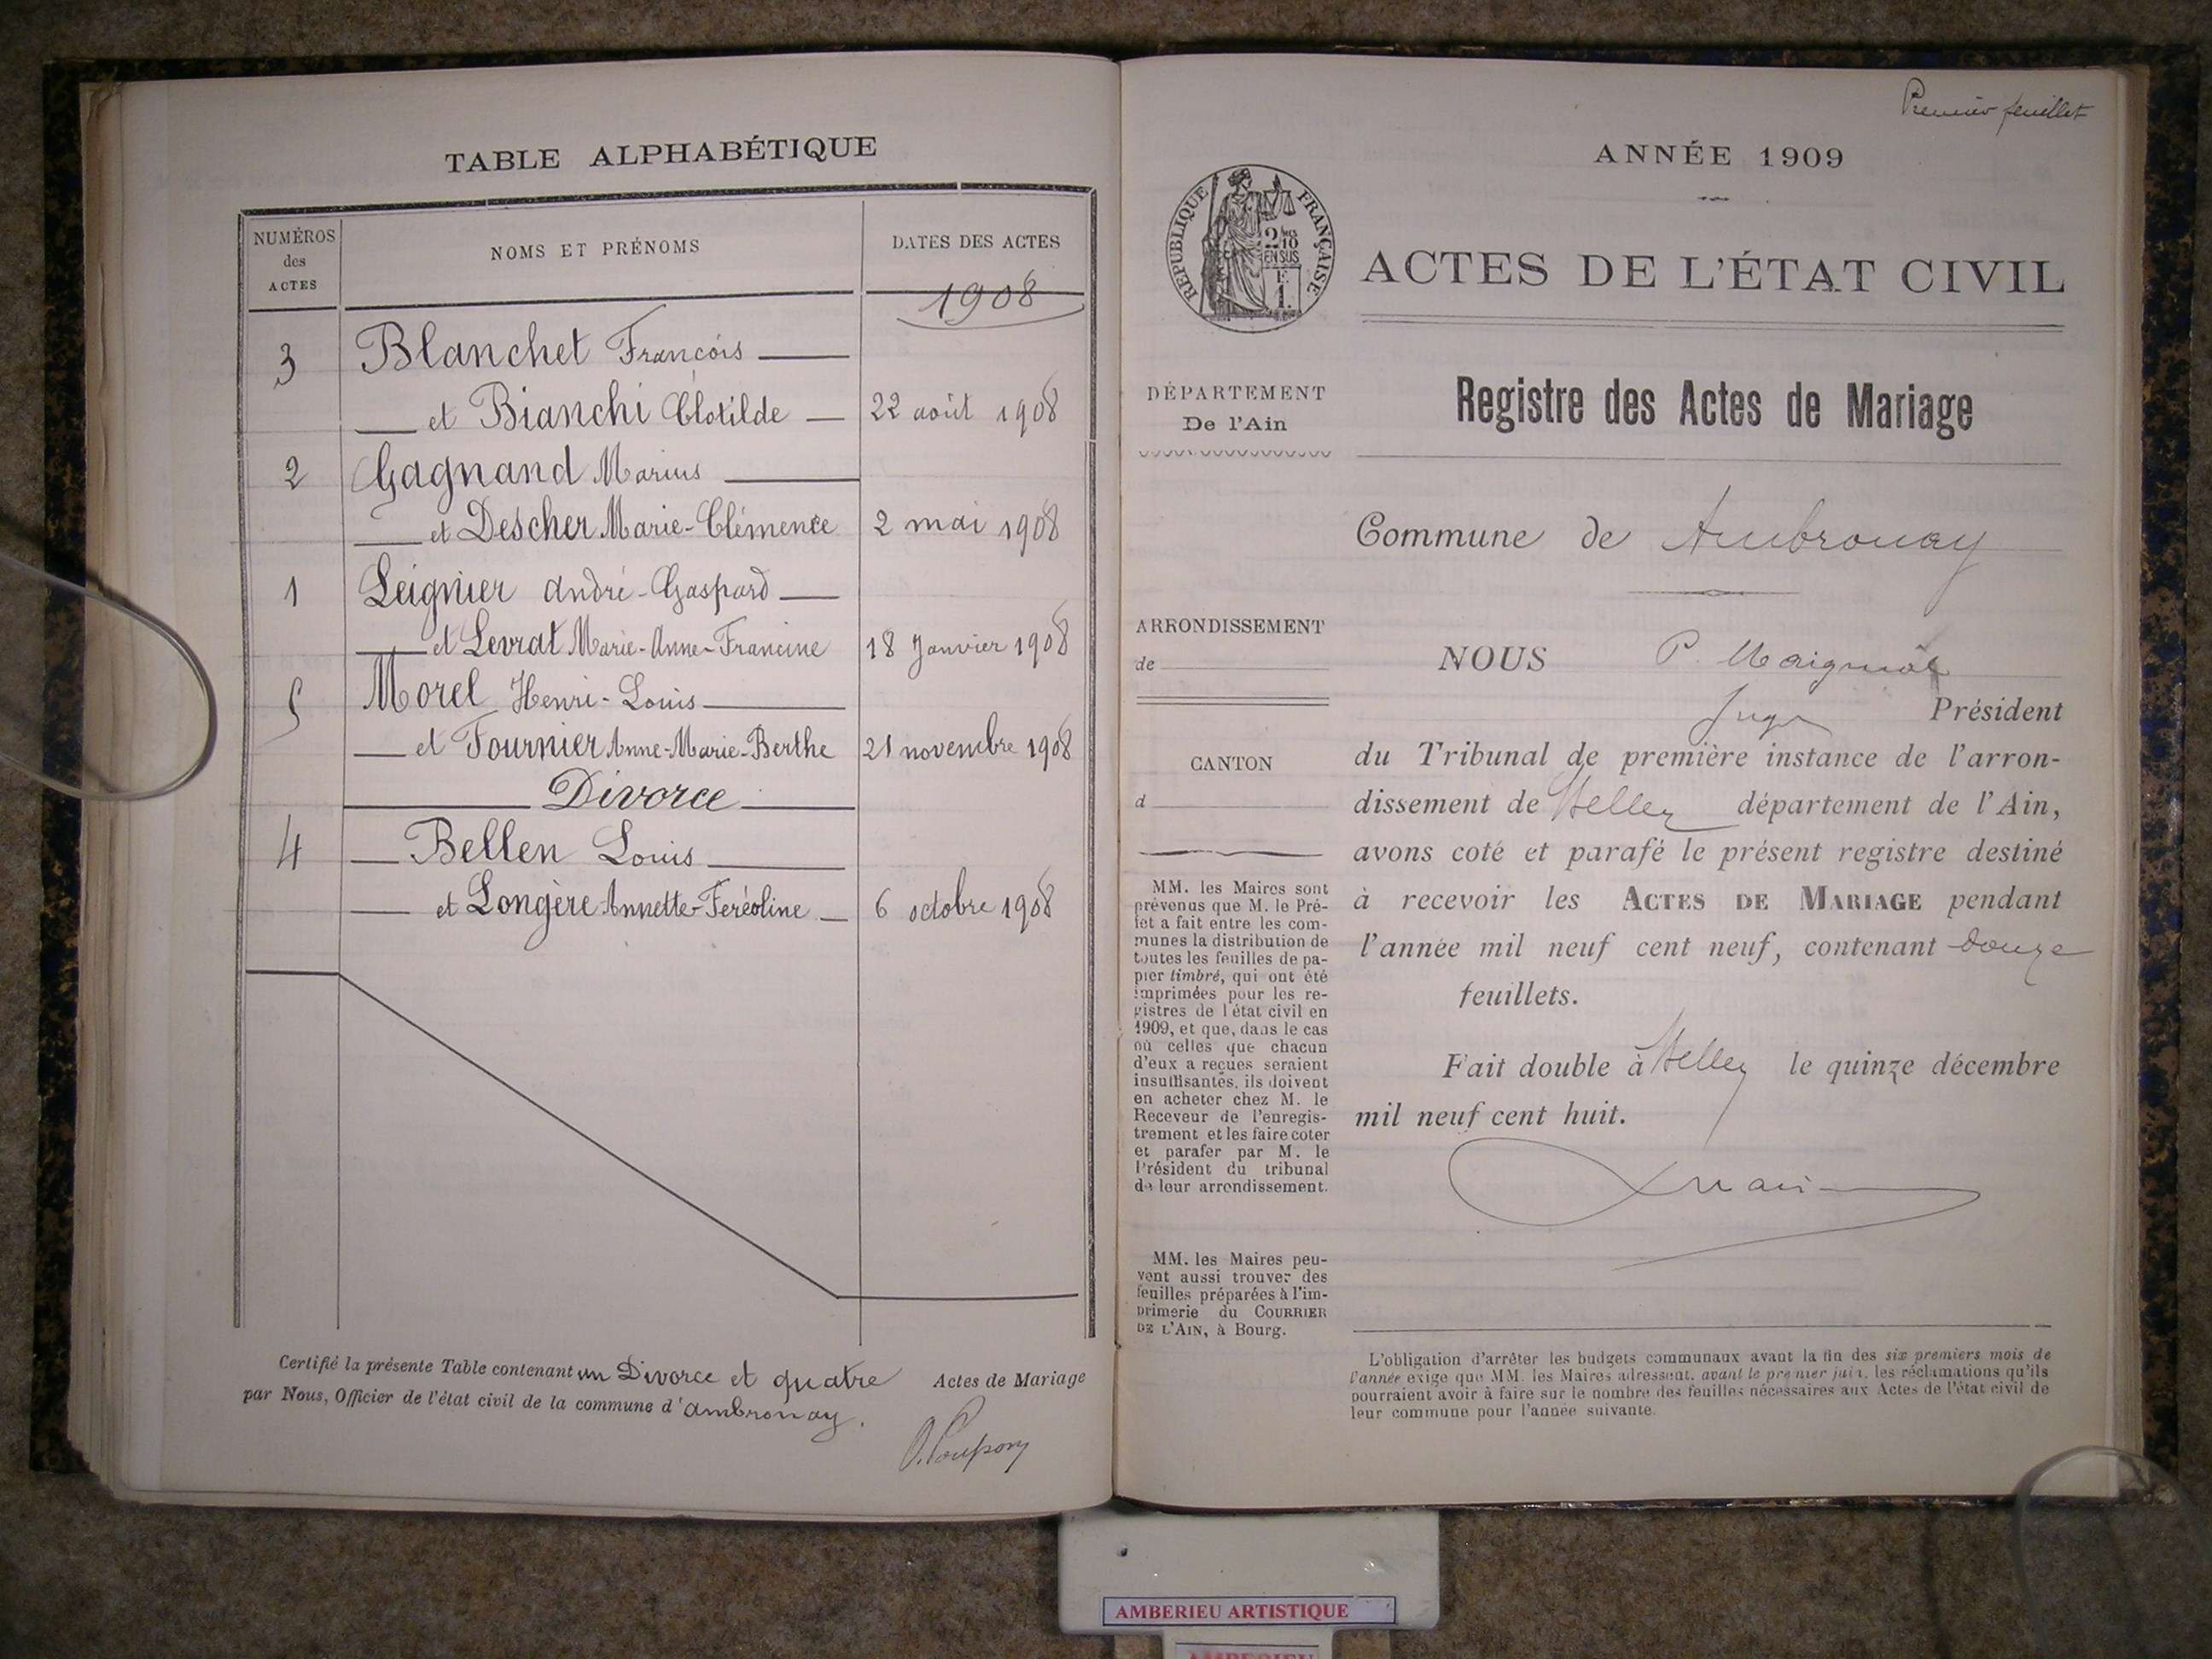 TABLE ALPHABÉTIQUE
NUMÉROS des ACTES
NOMS ET PRÉNOMS
DATES DES ACTES
1908
3 Blanchet François
et Bianchi Clotilde 22 août 1908
2 Gagnand Marius
et Descher Marie-Clémence 2 mai 1908
1 Leignier André-Gaspard
et Levrat Marie-Anne-Francine 18 Janvier 1908
5 Morel Henri-Louis
et Fournier Anne-Marie-Berthe 21 novembre 1908
Divorce
4 Bellen Louis
et Longère Annette-Feréoline 6 octobre 1908
Certifié la présente Table contenant un Divorce et quatre Actes de Mariage
par Nous, Officier de l'état civil de la commune d'Ambronay.
Premier feuillet
ANNÉE 1909
RÉPUBLIQUE FRANÇAISE
2/10
EN SUS
1
ACTES DE L'ÉTAT CIVIL
DÉPARTEMENT
De l'Ain
ARRONDISSEMENT
de
CANTON
d
MM. les Maires sont
prévenus que M. le Pré-
fet a fait entre les com-
munes la distribution de
toutes les feuilles de pa-
pier timbré, qui ont été
imprimées pour les re-
gistres de l'état civil en
1909, et que, dans le cas
où celles que chacun
d'eux a reçues seraient
insuffisantes, ils doivent
en acheter chez M. le
Receveur de l'enregis-
trement et les faire coter
et parafer par M. le
Président du tribunal
de leur arrondissement.
MM. les Maires peu-
vent aussi trouver des
feuilles préparées à l'im-
primerie du COURRIER
DE L'AIN, à Bourg.
Registre des Actes de Mariage
Commune de Ambronay
NOUS P.
Juge Président
du Tribunal de première instance de l'arron-
dissement de Belley département de l'Ain,
avons coté et parafé le présent registre destiné
à recevoir les ACTES DE MARIAGE pendant
l'année mil neuf cent neuf, contenant douze
feuillets.
Fait double à Belley le quinze décembre
mil neuf cent huit.
L'obligation d'arrêter les budgets communaux avant la fin des six premiers mois de
l'année exige que MM. les Maires adressent, avant le premier juin, les réclamations qu'ils
pourraient avoir à faire sur le nombre des feuilles nécessaires aux Actes de l'état civil de
leur commune pour l'année suivante.
AMBERIEU ARTISTIQUE
AMBERIEU